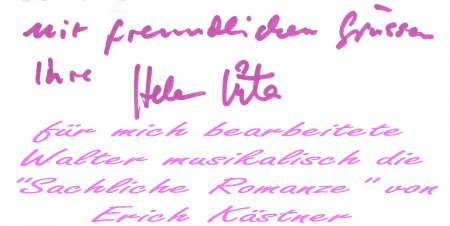 mit freundlichen Grüssen
Ihre Helen Vita
für mich bearbeitete
Walter musikalisch die
"Sachliche Romanze" von
Erich Kästner